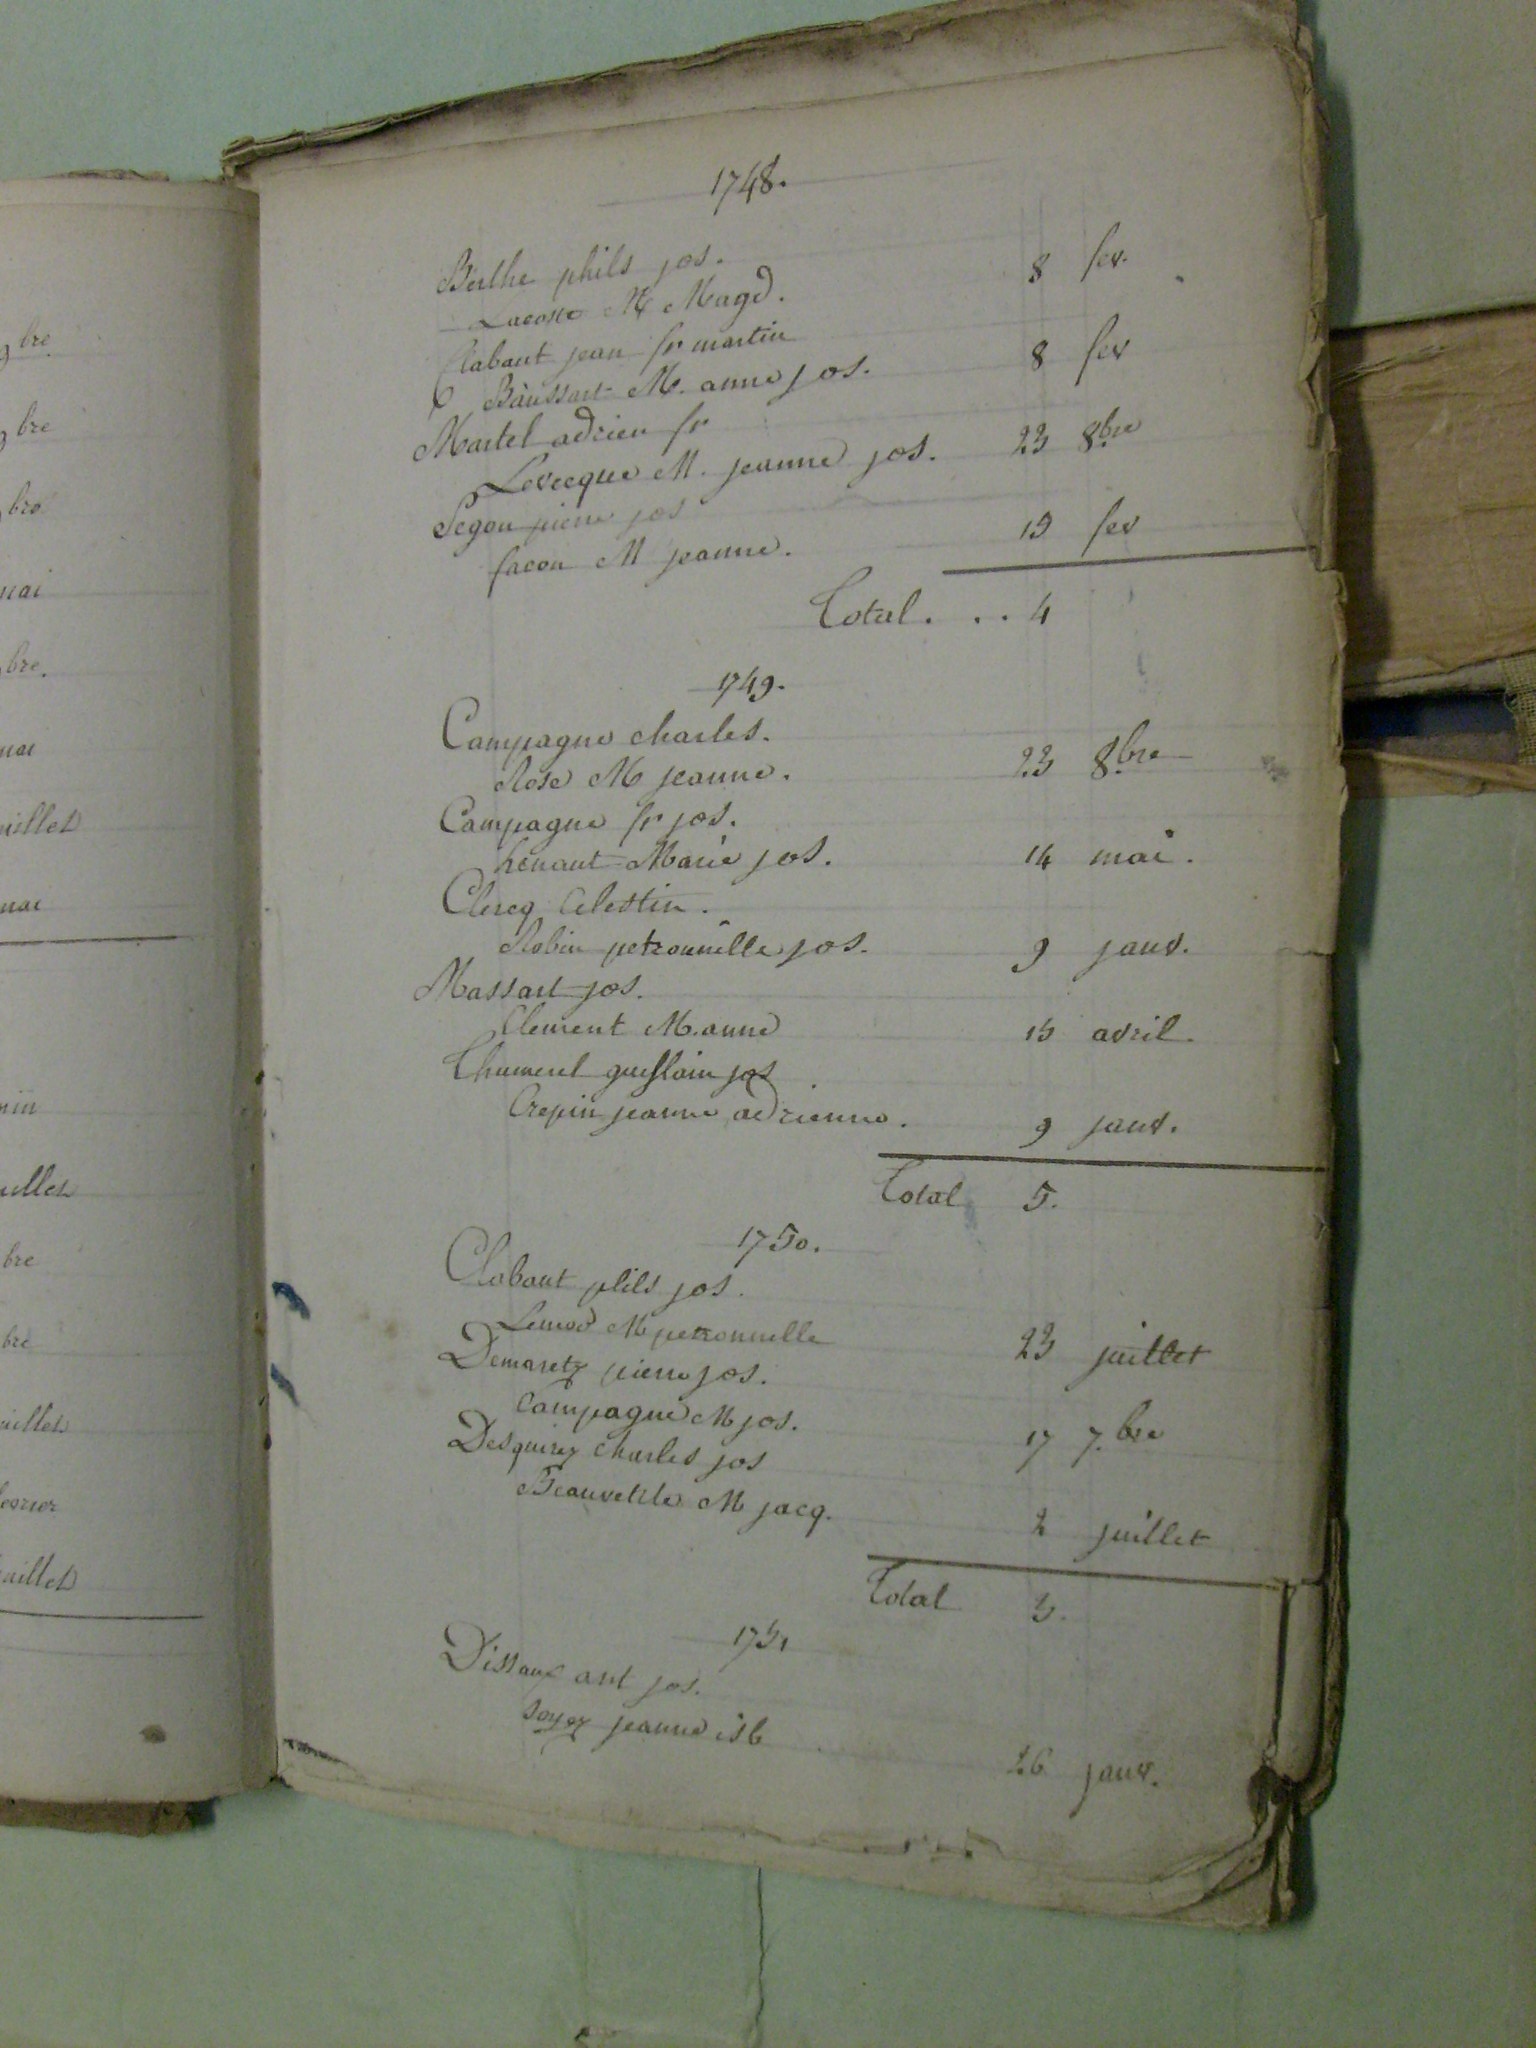 1748.
Berthe phils jos. 8 fev.
Lacoste M Magd.
Clabaut jean fr martin 8 fev
Baussart M. anne jos.
Martel adrien fr 23 8.bre
Levecque M. jeanne jos.
Segon pierre jos 19 fev
facon M jeanne.
Total. . . 4
1749.
Campagne charles.
Rose M jeanne. 23 8.bre
Campagne fr jos.
henaut Marie jos. 14 mai.
Clercq Celestin.
Robin petronille jos. 9 janv.
Massart jos.
Clement M. anne 15 avril.
Thumerel guislain jos
Crepin jeanne adrienne. 9 janv.
Total 5.
1750.
Clabaut phils jos.
M petronnelle 23 juillet
Demaretz pierre jos.
Campagne M jos. 17 7.bre
Desquirez charles jos
M jacq. 2 juillet
Total 3.
1751
Dissaux ant jos.
soyez jeanne isb 26 janv.
bre
bre
mai
bre.
mai
juillet
mai
bre
bre
juillet
fevrier
juillet